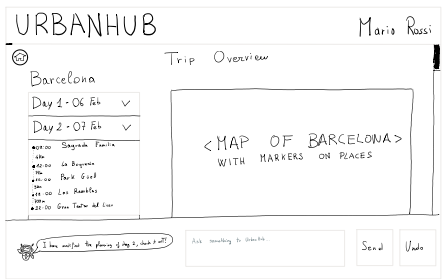 URBANHUB
Mario Rossi
Trip Overview
Barcelona
Day 1 - 06 Feb
Day 2 - 07 Feb
Sagrada Familia
La Boqueria
Park Güell
Las Ramblas
Gran Teatro del Liceu
<MAP OF BARCELONA>
WITH MARKERS ON PLACES
the planning of day 2, check it out!
Ask something to UrbanHub...
Send
Undo